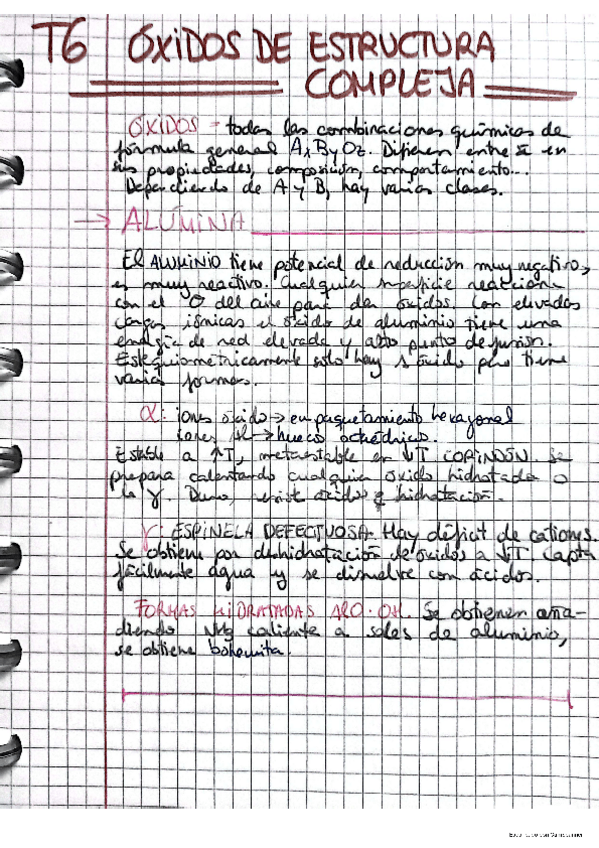 T6 ÓXIDOS DE ESTRUCTURA
COMPLEJA
ÓXIDOS - todas las combinaciones químicas de
fórmula general AxByOz. Difieren entre sí en
sus propiedades, composición, comportamiento...
Dependiendo de A y B, hay varias clases.
→ ALÚMINA
El ALUMINIO tiene potencial de reducción muy negativo,
es muy reactivo. Cualquier superficie reacciona
con el O del aire para dar óxidos. Con elevadas
cargas iónicas el óxido de aluminio tiene una
energía de red elevada y alto punto de fusión.
Estequiométricamente solo hay 1 óxido pero tiene
varias formas.
α: iones óxido → empaquetamiento hexagonal
iones Al → hueco octaédrico.
Estable a ↑T, metaestable en ↓T CORINDÓN. Se
prepara calentando cualquier óxido hidratado o
la γ. Duro, resiste ácidos e hidratación.
γ: ESPINELA DEFECTUOSA. Hay déficit de cationes.
Se obtiene por deshidratación de óxidos a ↓T. Capta
fácilmente agua y se disuelve con ácidos.
FORMAS HIDRATADAS AlO·OH. Se obtienen aña-
diendo NH3 caliente a sales de aluminio,
se obtiene bohemita.